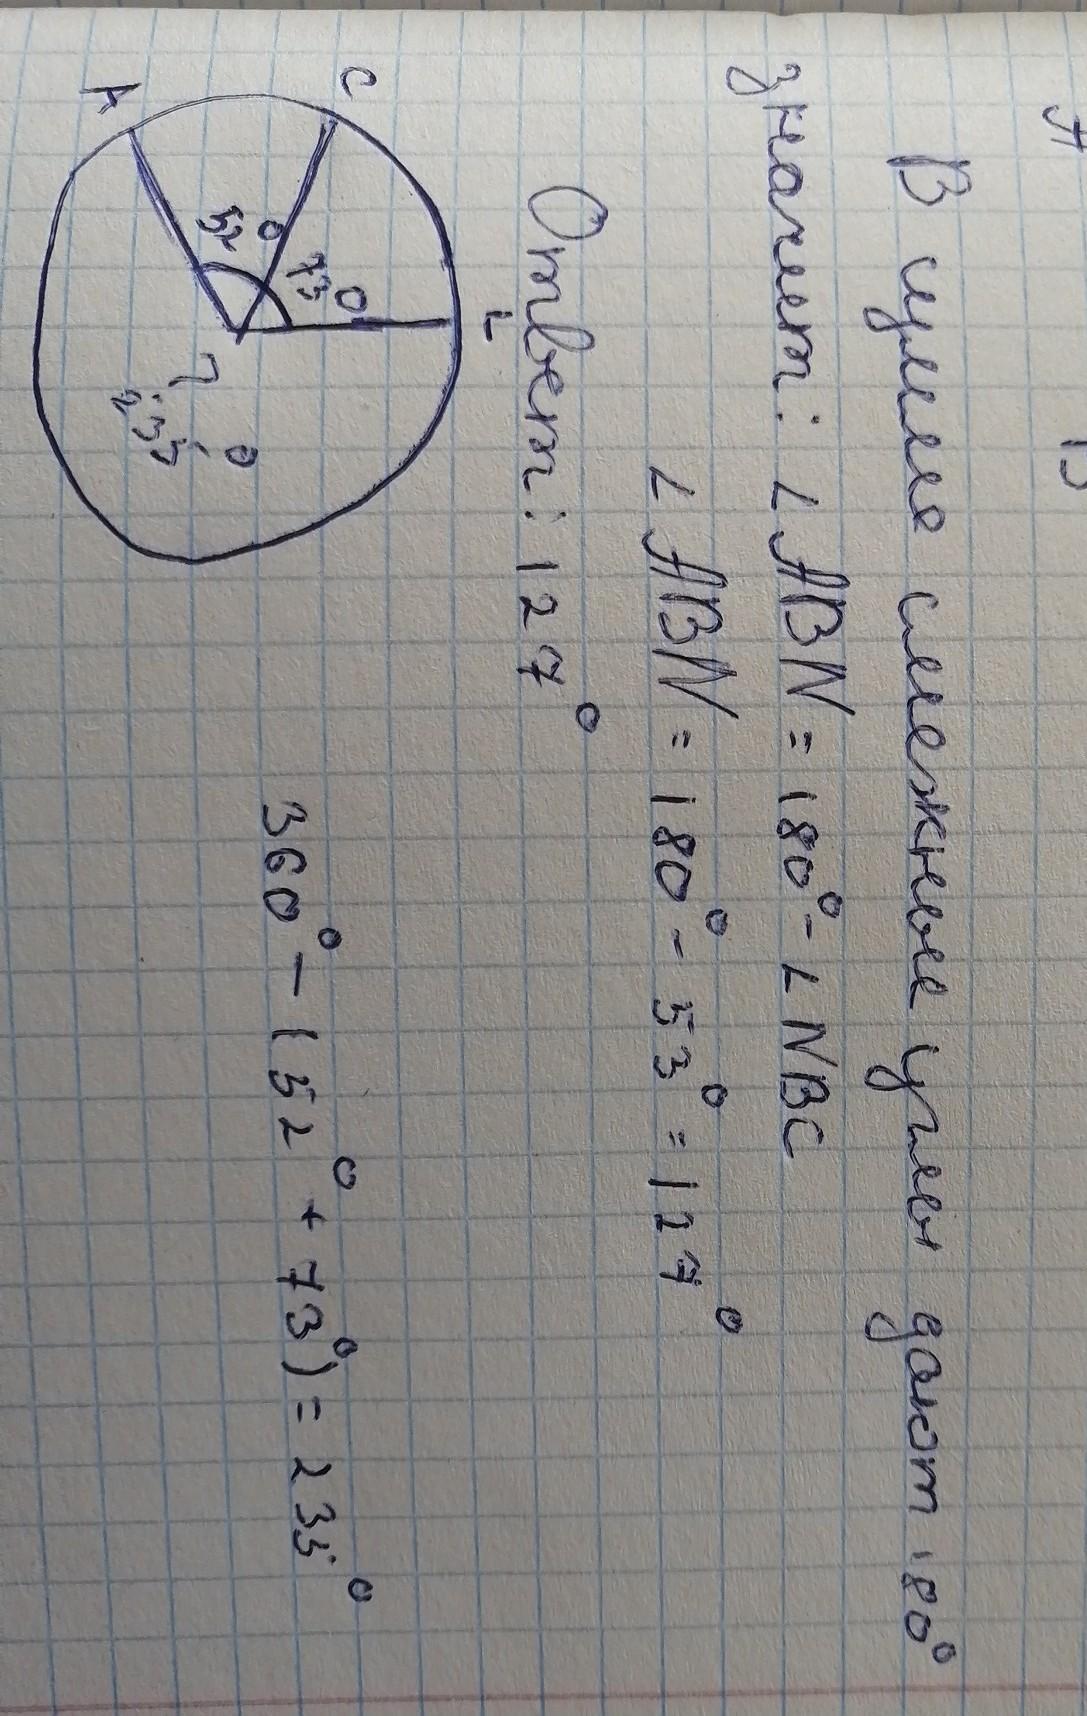 A В
В сумме смежные углы дают 180°
значит: ∠ABN = 180° - ∠NBC
∠ABN = 180° - 53° = 127°
Ответ: 127°
C
L
A
73°
52°
?
235°
360° - (52° + 73°) = 235°